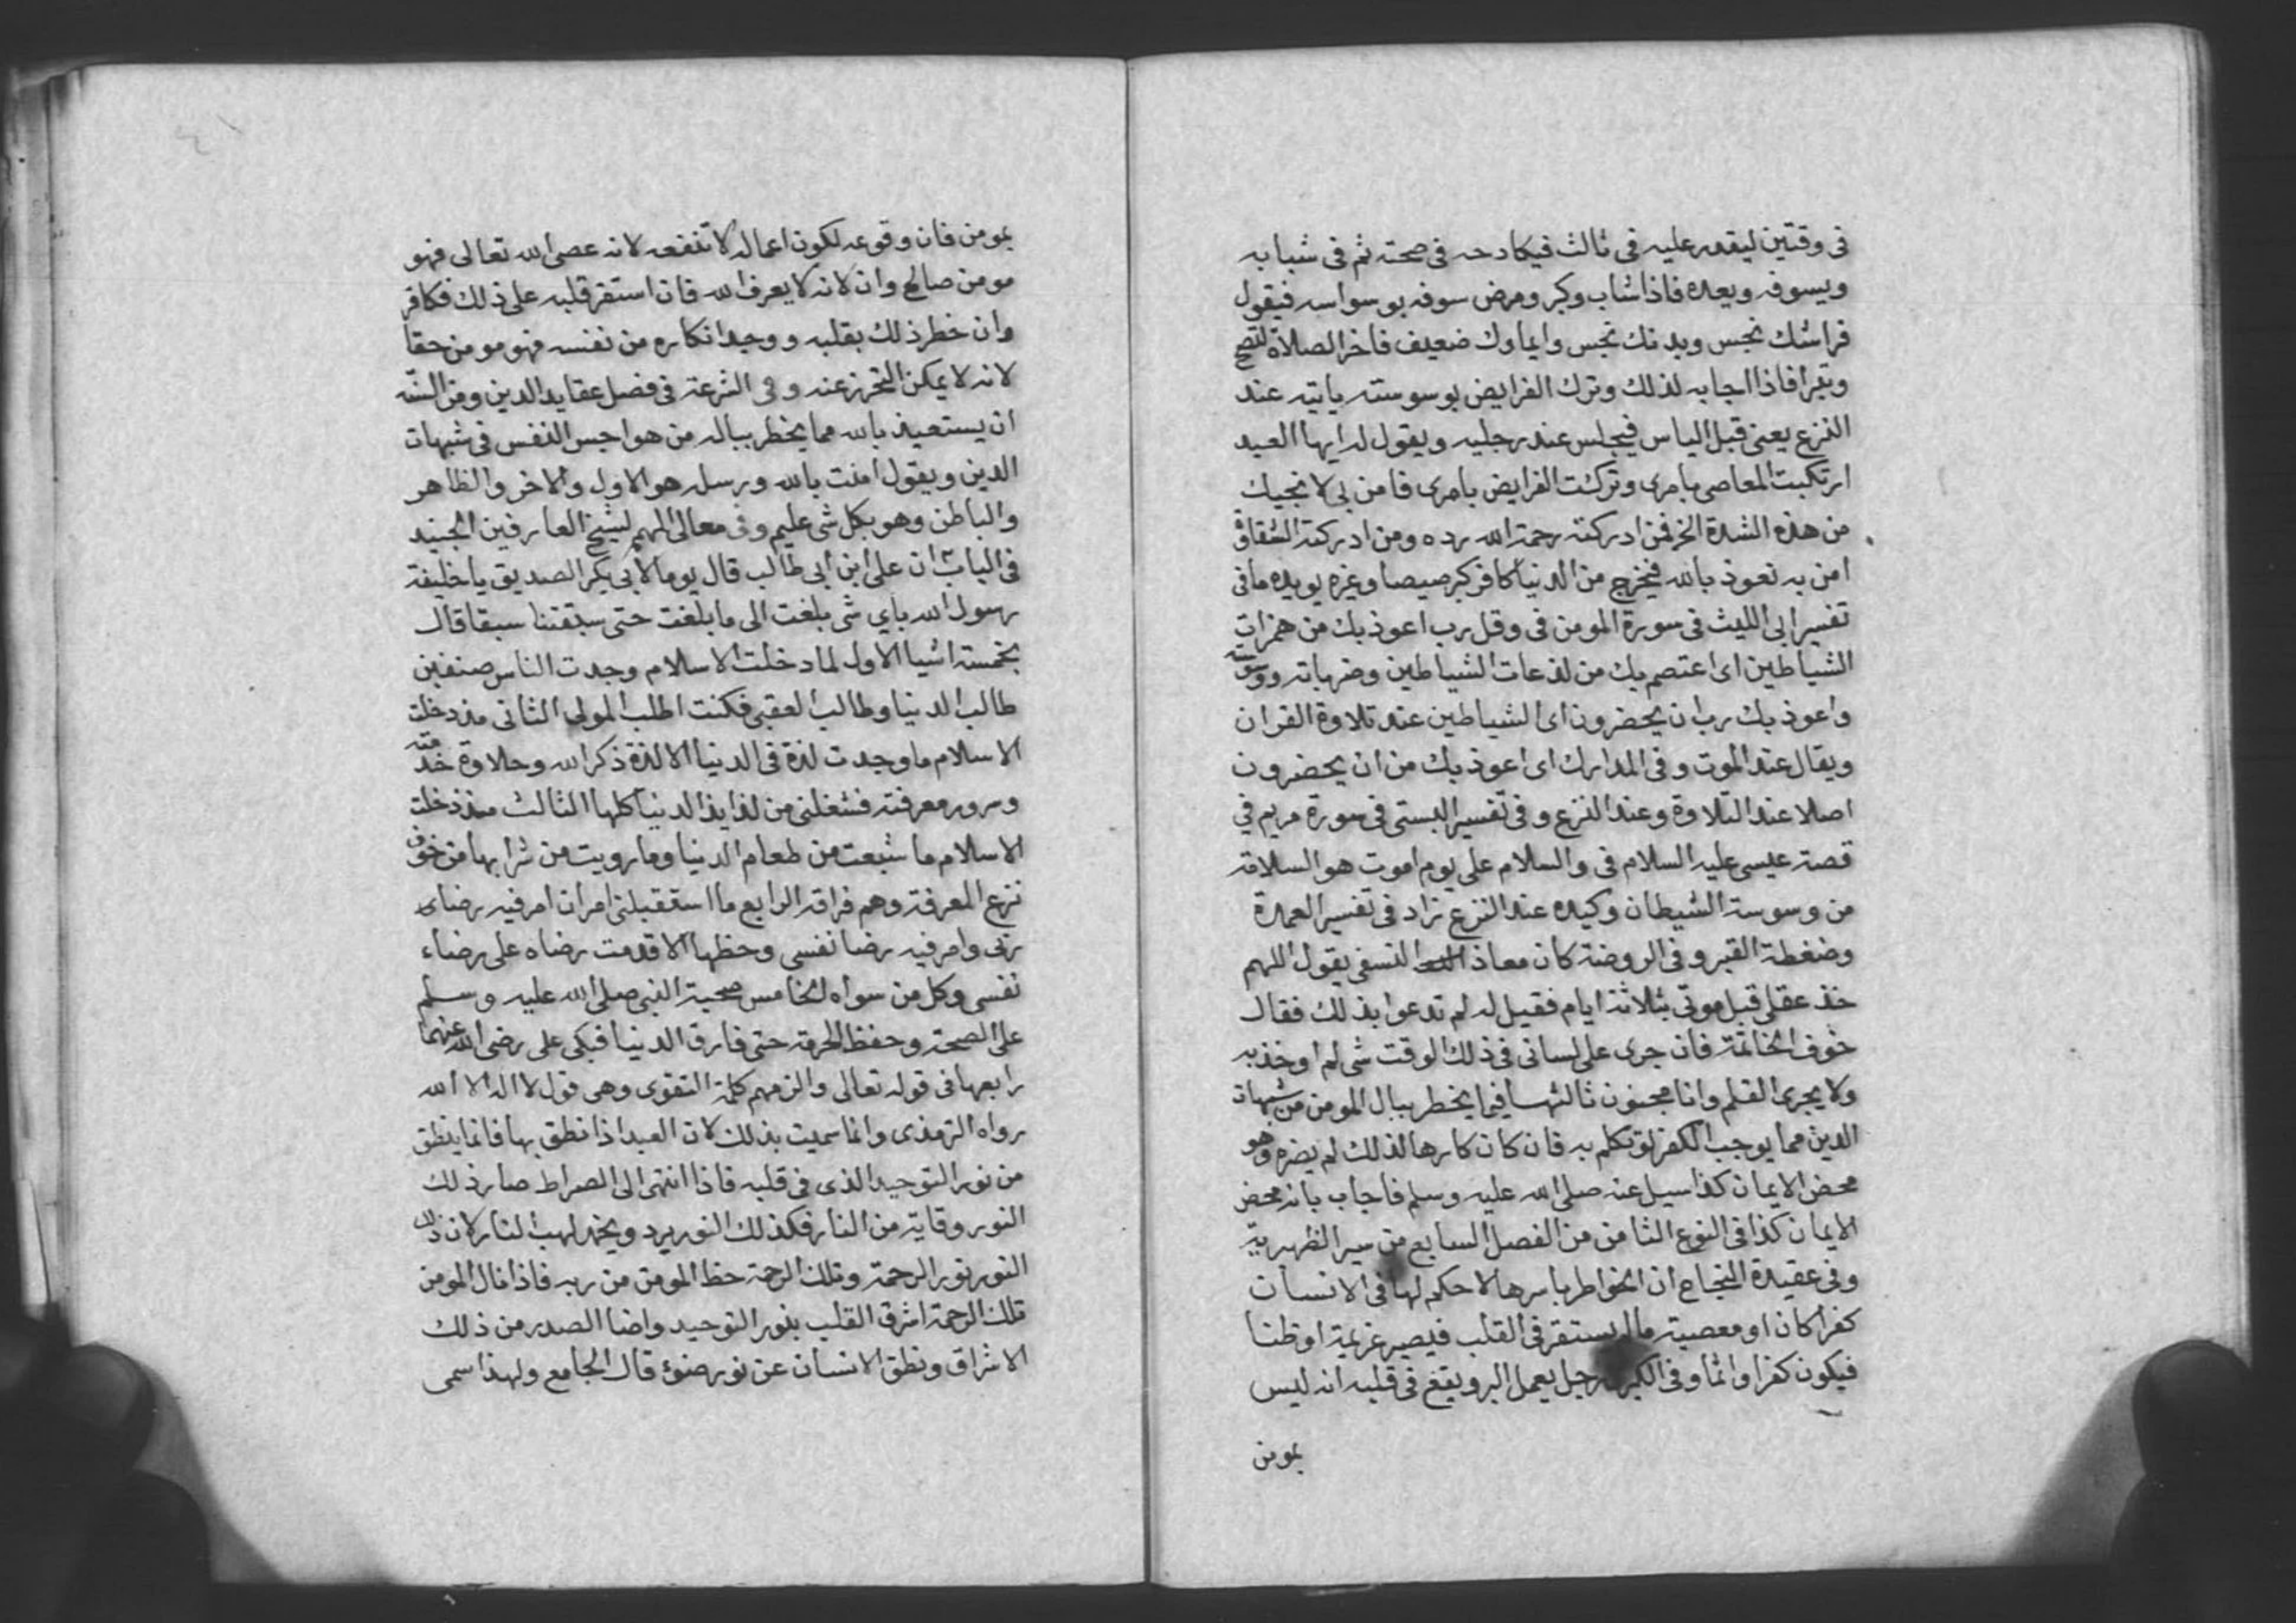 فى وقتين ليقدر عليه فى ثالث فيكادحه فى صحته ثم فى شبابه
ويسوفه ويعده فاذا شاب وكبر ومرض سوفه بوسواسه فيقول
فراشك نجس وبدنك نجس وايماوك ضعيف فاخر الصلاة لتصح
وتبرا فاذا اجابه لذلك وترك الفرايض بوسوسته ياتيه عند
النزع يعنى قبل الياس فيجلس عند رجليه ويقول له ايها العبد
ارتكبت المعاصى بامرى وتركت الفرايض بامرى فامن بى لانجيك
من هذه الشدة الخ فمن ادركته رحمة الله رده ومن ادركته الشقاوة
امن به نعوذ بالله فيخرج من الدنيا كافر كبرصيصا وغيره يويده ما فى
تفسير ابى الليث فى سورة المومن فى وقل رب اعوذ بك من همزات
الشياطين اى اعتصم بك من لذعات الشياطين وضرباته ووسوسته
واعوذ بك رب ان يحضرون اى الشياطين عند تلاوة القران
ويقال عند الموت وفى المدارك اى اعوذ بك من ان يحضرون
اصلا عند التلاوة وعند النزع وفى تفسير البستى فى سورة مريم في
قصة عيسى عليه السلام فى والسلام على يوم اموت هو السلامة
من وسوسة الشيطان وكيده عند النزع زاد فى تفسير العمدة
وضغطة القبر وفى الروضة كان معاذ النسفى يقول اللهم
خذ عقلى قبل موتى بثلاثة ايام فقيل له لم تدعوا بذلك فقال
خوف الخاتمة فان جرى على لسانى فى ذلك الوقت شى لم اوخذ به
ولا يجرى القلم وانا مجنون ثالثها فيما يخطر ببال المومن من شبهات
الدين مما يوجب الكفر لو تكلم به فان كان كارها لذلك لم يضره وهو
محض الايمان كذا سيل عنه صلى الله عليه وسلم فاجاب بانه محض
الايمان كذا فى النوع الثامن من الفصل السابع من سير الظهيرية
وفى عقيدة النجاح ان الخواطر باسرها لا حكم لها فى الانسان
كفرا كان او معصية ما لم يستقر فى القلب فيصير عزيمة او ظنا
فيكون كفرا واثما وفى الكبرى رجل يعمل البر ويقع فى قلبه انه ليس
بمومن
بمومن فان وقوعه لكون اعماله لا تنفعه لانه عصى الله تعالى فهو
مومن صالح وان لانه لا يعرف الله فان استقر قلبه على ذلك فكافر
وان خطر ذلك بقلبه ووجد انكاره من نفسه فهو مومن حقا
لانه لا يمكن التحرز عنه وفى الشرعة فى فصل عقايد الدين ومن السنة
ان يستعيذ بالله مما يخطر بباله من هواجس النفس فى شبهات
الدين ويقول امنت بالله ورسله هو الاول والاخر والظاهر
والباطن وهو بكل شى عليم وفى معالى الهمم لشيخ العارفين الجنيد
فى الباب ان على ابن ابى طالب قال يوما لابى بكر الصديق يا خليفة
رسول الله باي شى بلغت الى ما بلغت حتى سبقتنا سبقا قال
بخمسة اشيا الاول لما دخلت الاسلام وجدت الناس صنفين
طالب الدنيا وطالب العقبى فكنت اطلب المولى الثانى منذ دخلت
الاسلام ما وجدت لذة فى الدنيا الا لذة ذكر الله وحلاوة خدمته
وسرور معرفته فشغلنى من لذايذ الدنيا كلها الثالث منذ دخلت
الاسلام ما شبعت من طعام الدنيا وما رويت من شرابها من خوف
نزع المعرفة وهم فراقه الرابع ما استقبلنى امران امر فيه رضاى
ربى وامر فيه رضا نفسى وحظها الا قدمت رضاه على رضاء
نفسى وكل من سواه الخامس صحبة النبى صلى الله عليه وسلم
على الصحة وحفظ الحرمة حتى فارق الدنيا فبكى على رضى الله عنهما
رابعها فى قوله تعالى والزمهم كلمة التقوى وهى قول لا اله الا الله
رواه الترمذى وانما سميت بذلك لان العبد اذا نطق بها فانما ينطق
من نور التوحيد الذى فى قلبه فاذا انتهى الى الصراط صار ذلك
النور وقاية من النار فكذلك النور يرد ويخمد لهب النار لان ذلك
النور نور الرحمة وتلك الرحمة حظ المومن من ربه فاذا نال المومن
تلك الرحمة اشرق القلب بنور التوحيد واضا الصدر من ذلك
الاشراق ونطق الانسان عن نور ضوء قال الجامع ولهذا سمى